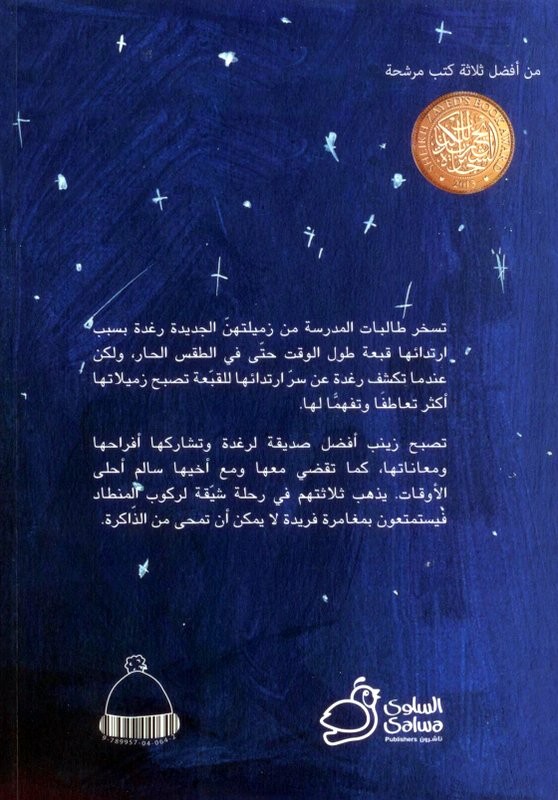 من أفضل ثلاثة كتب مرشحة
SHEIKH ZAYED BOOK AWARD
2015
تسخر طالبات المدرسة من زميلتهنّ الجديدة رغدة بسبب
ارتدائها قبعة طول الوقت حتّى في الطقس الحار، ولكن
عندما تكشف رغدة عن سرّ ارتدائها للقبّعة تصبح زميلاتها
أكثر تعاطفًا وتفهمًا لها.
تصبح زينب أفضل صديقة لرغدة وتشاركها أفراحها
ومعاناتها، كما تقضي معها ومع أخيها سالم أحلى
الأوقات. يذهب ثلاثتهم في رحلة شيّقة لركوب المنطاد
فيستمتعون بمغامرة فريدة لا يمكن أن تمحى من الذّاكرة.
السلوى
Salwa
Publishers ناشرون